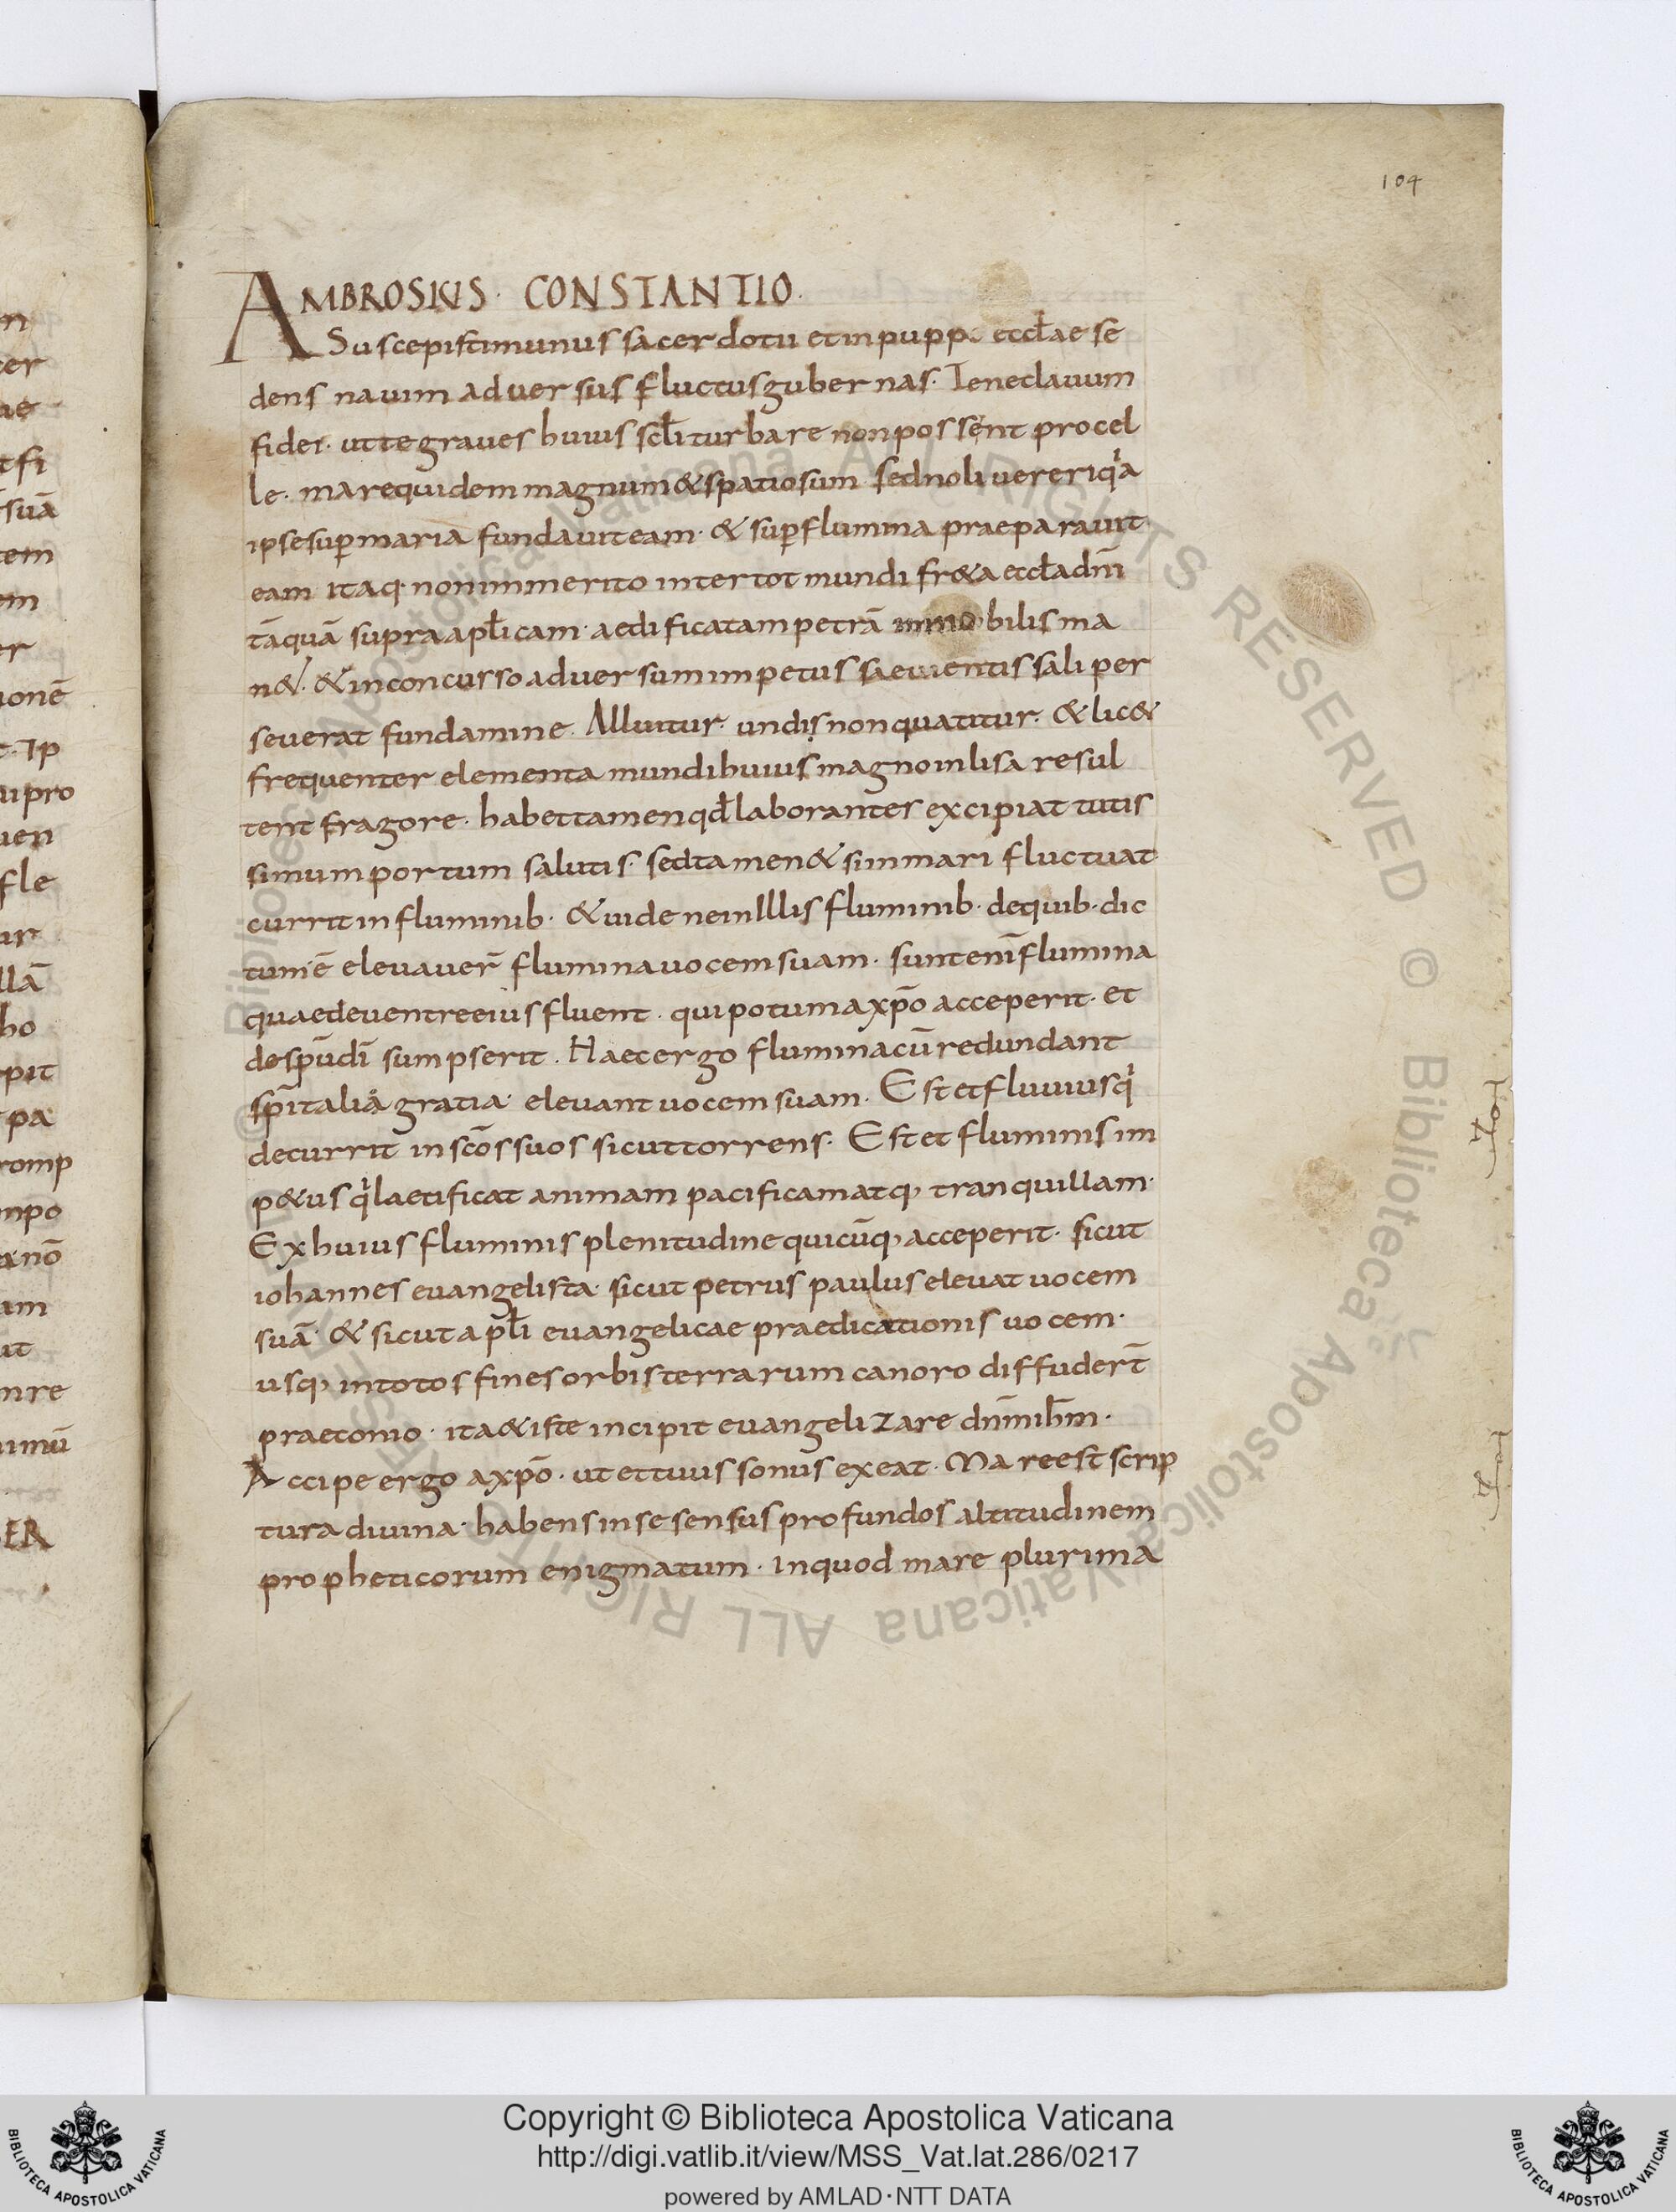 104
AMBROSIUS· CONSTANTIO·
Suscepisti munus sacerdotii et in puppi eccl̄ae se
dens navim adversus fluctus gubernas· Tene clavum
fidei· ut te graves huius scl̄i turbare non possent procel
le· mare quidem magnum & spatiosum sed noli vereri qⁱa
ipse sup̄ maria fundavit eam· & sup̄ flumina praeparavit
eam itaq· non inmerito inter tot mundi fr&a eccl̄a dn̄i
tāquā supra apl̄icam· aedificatam petrā inmobilis ma
n&· & inconcusso adversum impetus saevientis sali per
severat fundamine· Alluitur· undis non quatitur· & lic&
frequenter elementa mundi huius magno inlisa resul
tent fragore· habet tamen qd̄ laborantes excipiat tutis
simum portum salutis· sed tamen & si in mari fluctuat
currit in fluminib· & vide ne in Illis fluminib· de quib· dic
tum ē elevaver̄ flumina vocem suam· sunt eni̅ flumina
quae de ventre eius fluent· qui potum a xp̄o acceperit· et
de sp̄u dī sumpserit· Haec ergo flumina cū redundant
sp̄italia gratia· elevant vocem suam· Est et fluvius qⁱ
decurrit in scōs suos sicut torrens· Est et fluminis im
p&us qⁱ laetificat animam pacificam atq; tranquillam·
Ex huius fluminis plenitudine quicūq; acceperit· sicut
iohannes evangelista· sicut petrus paulus elevat vocem
suā· & sicut apl̄i evangelicae praedicationis vocem·
usq; in totos fines orbis terrarum canoro diffuder̄t
praeconio· ita & iste incipit evangelizare dn̄m ih̄m·
Accipe ergo a xp̄o· ut et tuus sonus exeat· Mare est scrip
tura divina· habens in se sensus profundos altitudinem
propheticorum enigmatum· in quod mare plurima
Copyright © Biblioteca Apostolica Vaticana
http://digi.vatlib.it/view/MSS_Vat.lat.286/0217
powered by AMLAD·NTT DATA
BIBLIOTECA APOSTOLICA VATICANA
BIBLIOTECA APOSTOLICA VATICANA